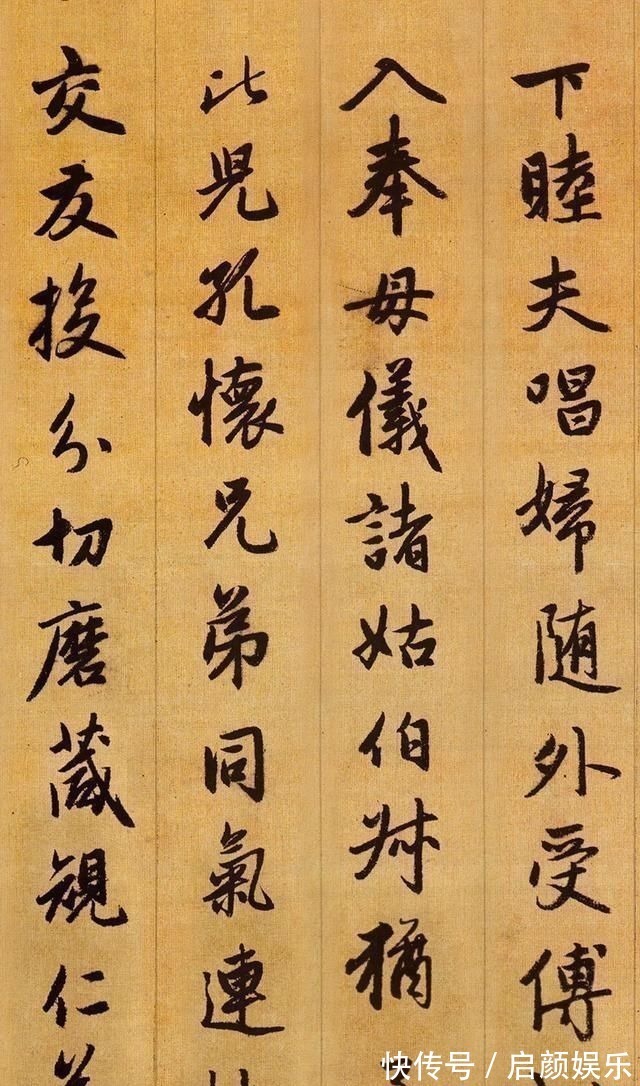 下睦夫唱婦随外受傅
入奉母儀諸姑伯叔猶
比兒孔懷兄弟同氣連
交友投分切磨箴規仁
快传号 / 启颜娱乐